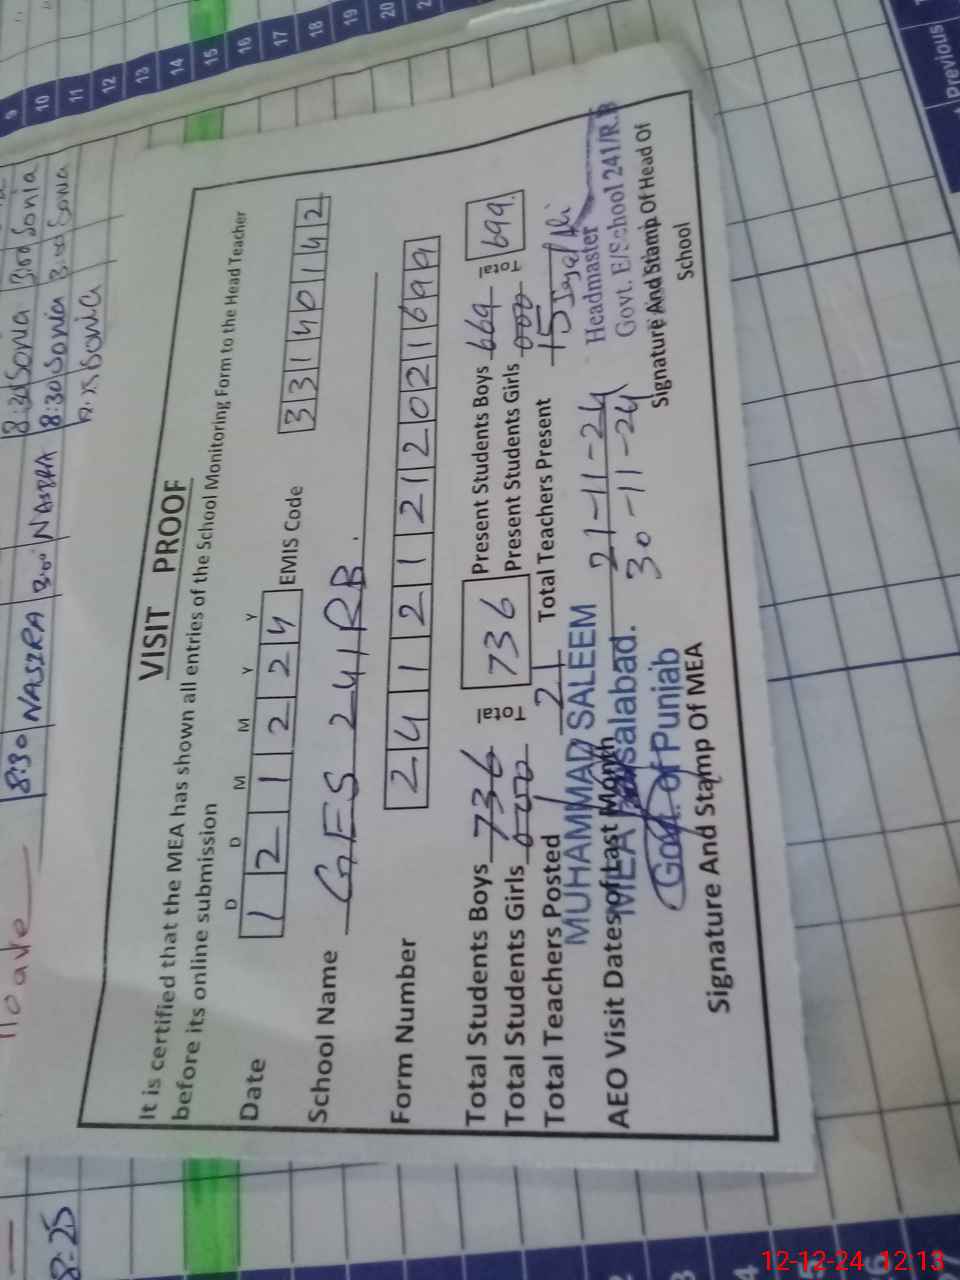 VISIT PROOF
It is certified that the MEA has shown all entries of the School Monitoring Form to the Head Teacher
before its online submission
D D M M Y Y
Date 1 2 1 2 2 4 EMIS Code 3 3 1 4 0 1 4 2
School Name GES 241RB.
Form Number 2 4 1 1 2 1 2 1 2 0 2 1 6 9 9
Total Students Boys 736 Total 736 Present Students Boys 669 Total 699
Total Students Girls 000 Present Students Girls 000
Total Teachers Posted 21 Total Teachers Present 15
MUHAMMAD SALEEM
Headmaster
AEO Visit Dates of Last Month 21-11-24
MEA Faisalabad. 30-11-24
Govt. E/School 241/R.B
Govt. of Punjab
Signature And Stamp Of MEA
Signature And Stamp Of Head Of
School
8:30 NASIRA 3:00 NASIRA 8:30 Sonia 3:00 Sonia
8:30 Sonia 3:00 Sonia
8:25
9
10
11
12
13
14
15
16
17
18
19
20
Previous
12-12-24 12:13